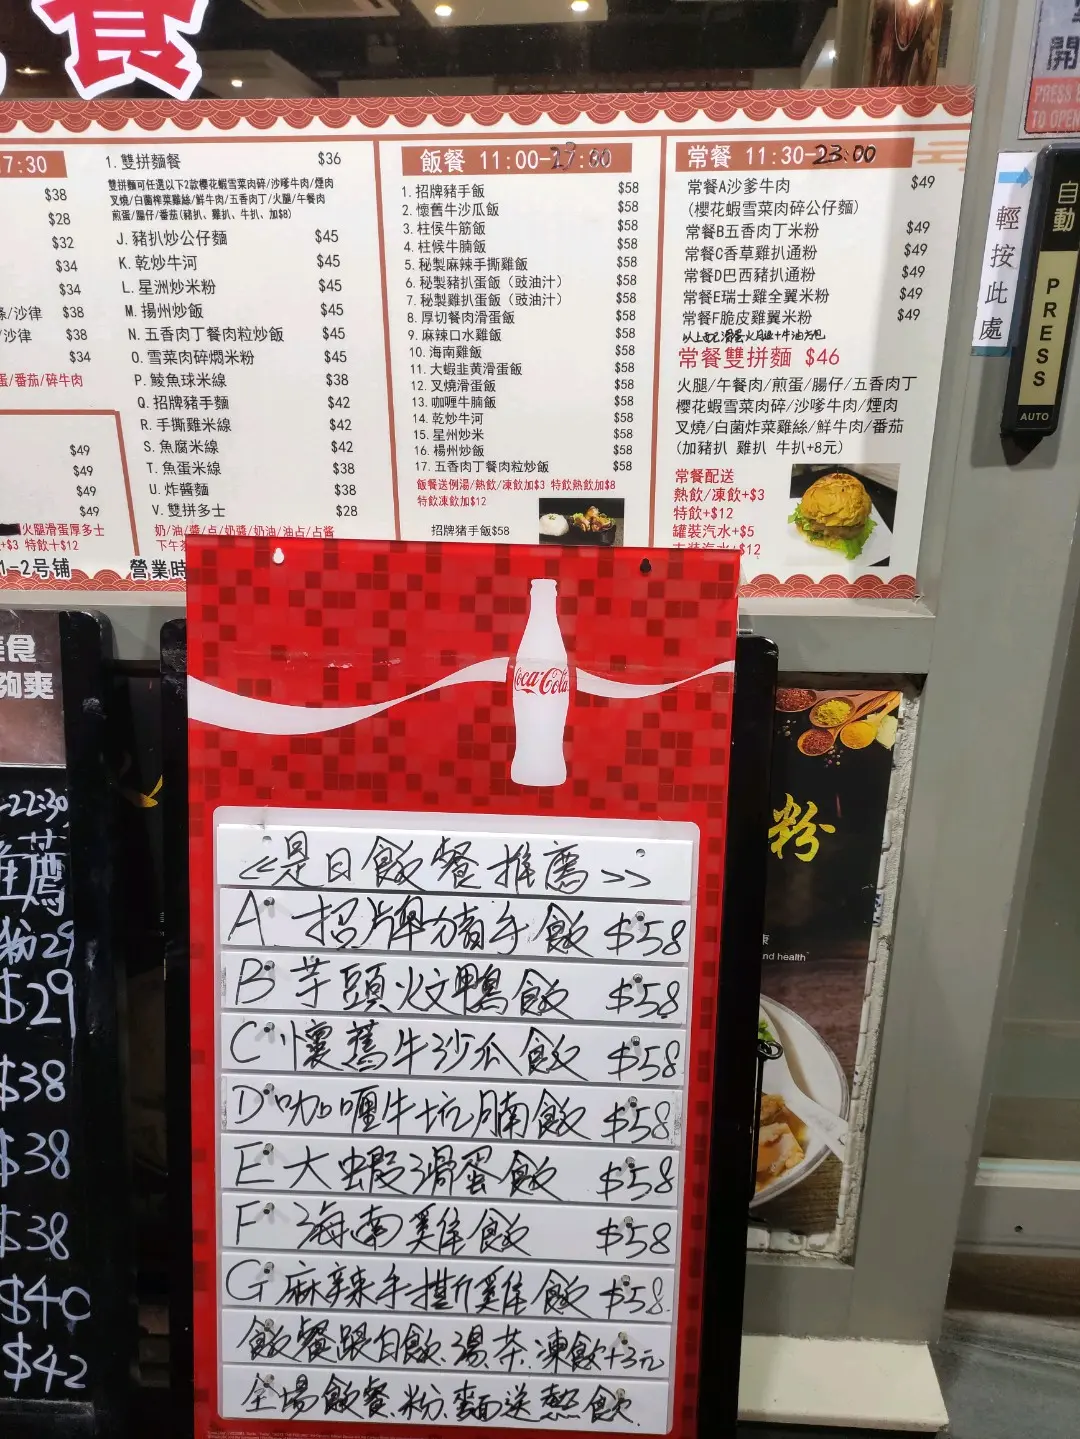 食
7:30
$38
$28
$32
$34
$34
/沙律 $38
沙律 $38
$34
蛋/番茄/碎牛肉
$49
$49
$49
$49
火腿滑蛋厚多士
+$3 特飲+$12
1-2号铺
1. 雙拼麵餐 $36
雙拼麵可任選以下2款櫻花蝦雪菜肉碎/沙嗲牛肉/煙肉
叉燒/白菌榨菜雞絲/鮮牛肉/五香肉丁/火腿/午餐肉
煎蛋/腸仔/番茄(豬扒、雞扒、牛扒、加$8)
J. 豬扒炒公仔麵 $45
K. 乾炒牛河 $45
L. 星洲炒米粉 $45
M. 揚州炒飯 $45
N. 五香肉丁餐肉粒炒飯 $45
O. 雪菜肉碎燜米粉 $45
P. 鯪魚球米線 $38
Q. 招牌豬手麵 $42
R. 手撕雞米線 $42
S. 魚腐米線 $42
T. 魚蛋米線 $38
U. 炸醬麵 $38
V. 雙拼多士 $28
奶/油/醬/占/奶醬/奶油/油占/占醬
下午
營業時
飯餐 11:00-23:00
1. 招牌豬手飯 $58
2. 懷舊牛沙瓜飯 $58
3. 柱侯牛筋飯 $58
4. 柱候牛腩飯 $58
5. 秘製麻辣手撕雞飯 $58
6. 秘製豬扒蛋飯（豉油汁） $58
7. 秘製雞扒蛋飯（豉油汁） $58
8. 厚切餐肉滑蛋飯 $58
9. 麻辣口水雞飯 $58
10. 海南雞飯 $58
11. 大蝦韭黄滑蛋飯 $58
12. 叉燒滑蛋飯 $58
13. 咖喱牛腩飯 $58
14. 乾炒牛河 $58
15. 星州炒米 $58
16. 楊州炒飯 $58
17. 五香肉丁餐肉粒炒飯 $58
飯餐送例湯/熱飲/凍飲加$3 特飲熱飲加$8
特飲凍飲加$12
招牌豬手飯$58
常餐 11:30-23:00
常餐A沙爹牛肉 $49
(櫻花蝦雪菜肉碎公仔麵)
常餐B五香肉丁米粉 $49
常餐C香草雞扒通粉 $49
常餐D巴西豬扒通粉 $49
常餐E瑞士雞全翼米粉 $49
常餐F脆皮雞翼米粉 $49
常餐雙拼麵 $46
火腿/午餐肉/煎蛋/腸仔/五香肉丁
櫻花蝦雪菜肉碎/沙嗲牛肉/煙肉
叉燒/白菌炸菜雞絲/鮮牛肉/番茄
(加豬扒 雞扒 牛扒+8元)
常餐配送
熱飲/凍飲+$3
特飲+$12
罐裝汽水+$5
$12
開
PRESS
TO OPEN
輕按此處
自動
PRESS
AUTO
Coca-Cola
<<是日飯餐推薦>>
A 招牌豬手飯 $58
B 芋頭炆鴨飯 $58
C 懷舊牛沙瓜飯 $58
D 咖喱牛坑腩飯 $58
E 大蝦滑蛋飯 $58
F 海南雞飯 $58
G 麻辣手撕雞飯 $58
飯餐跟白飯.湯.茶.凍飲+3元
全場飯餐.粉.麵送熱飲
食
夠爽
-22:30
推薦
粉29
$29
$38
$38
$38
$40
$42
粉
nd health